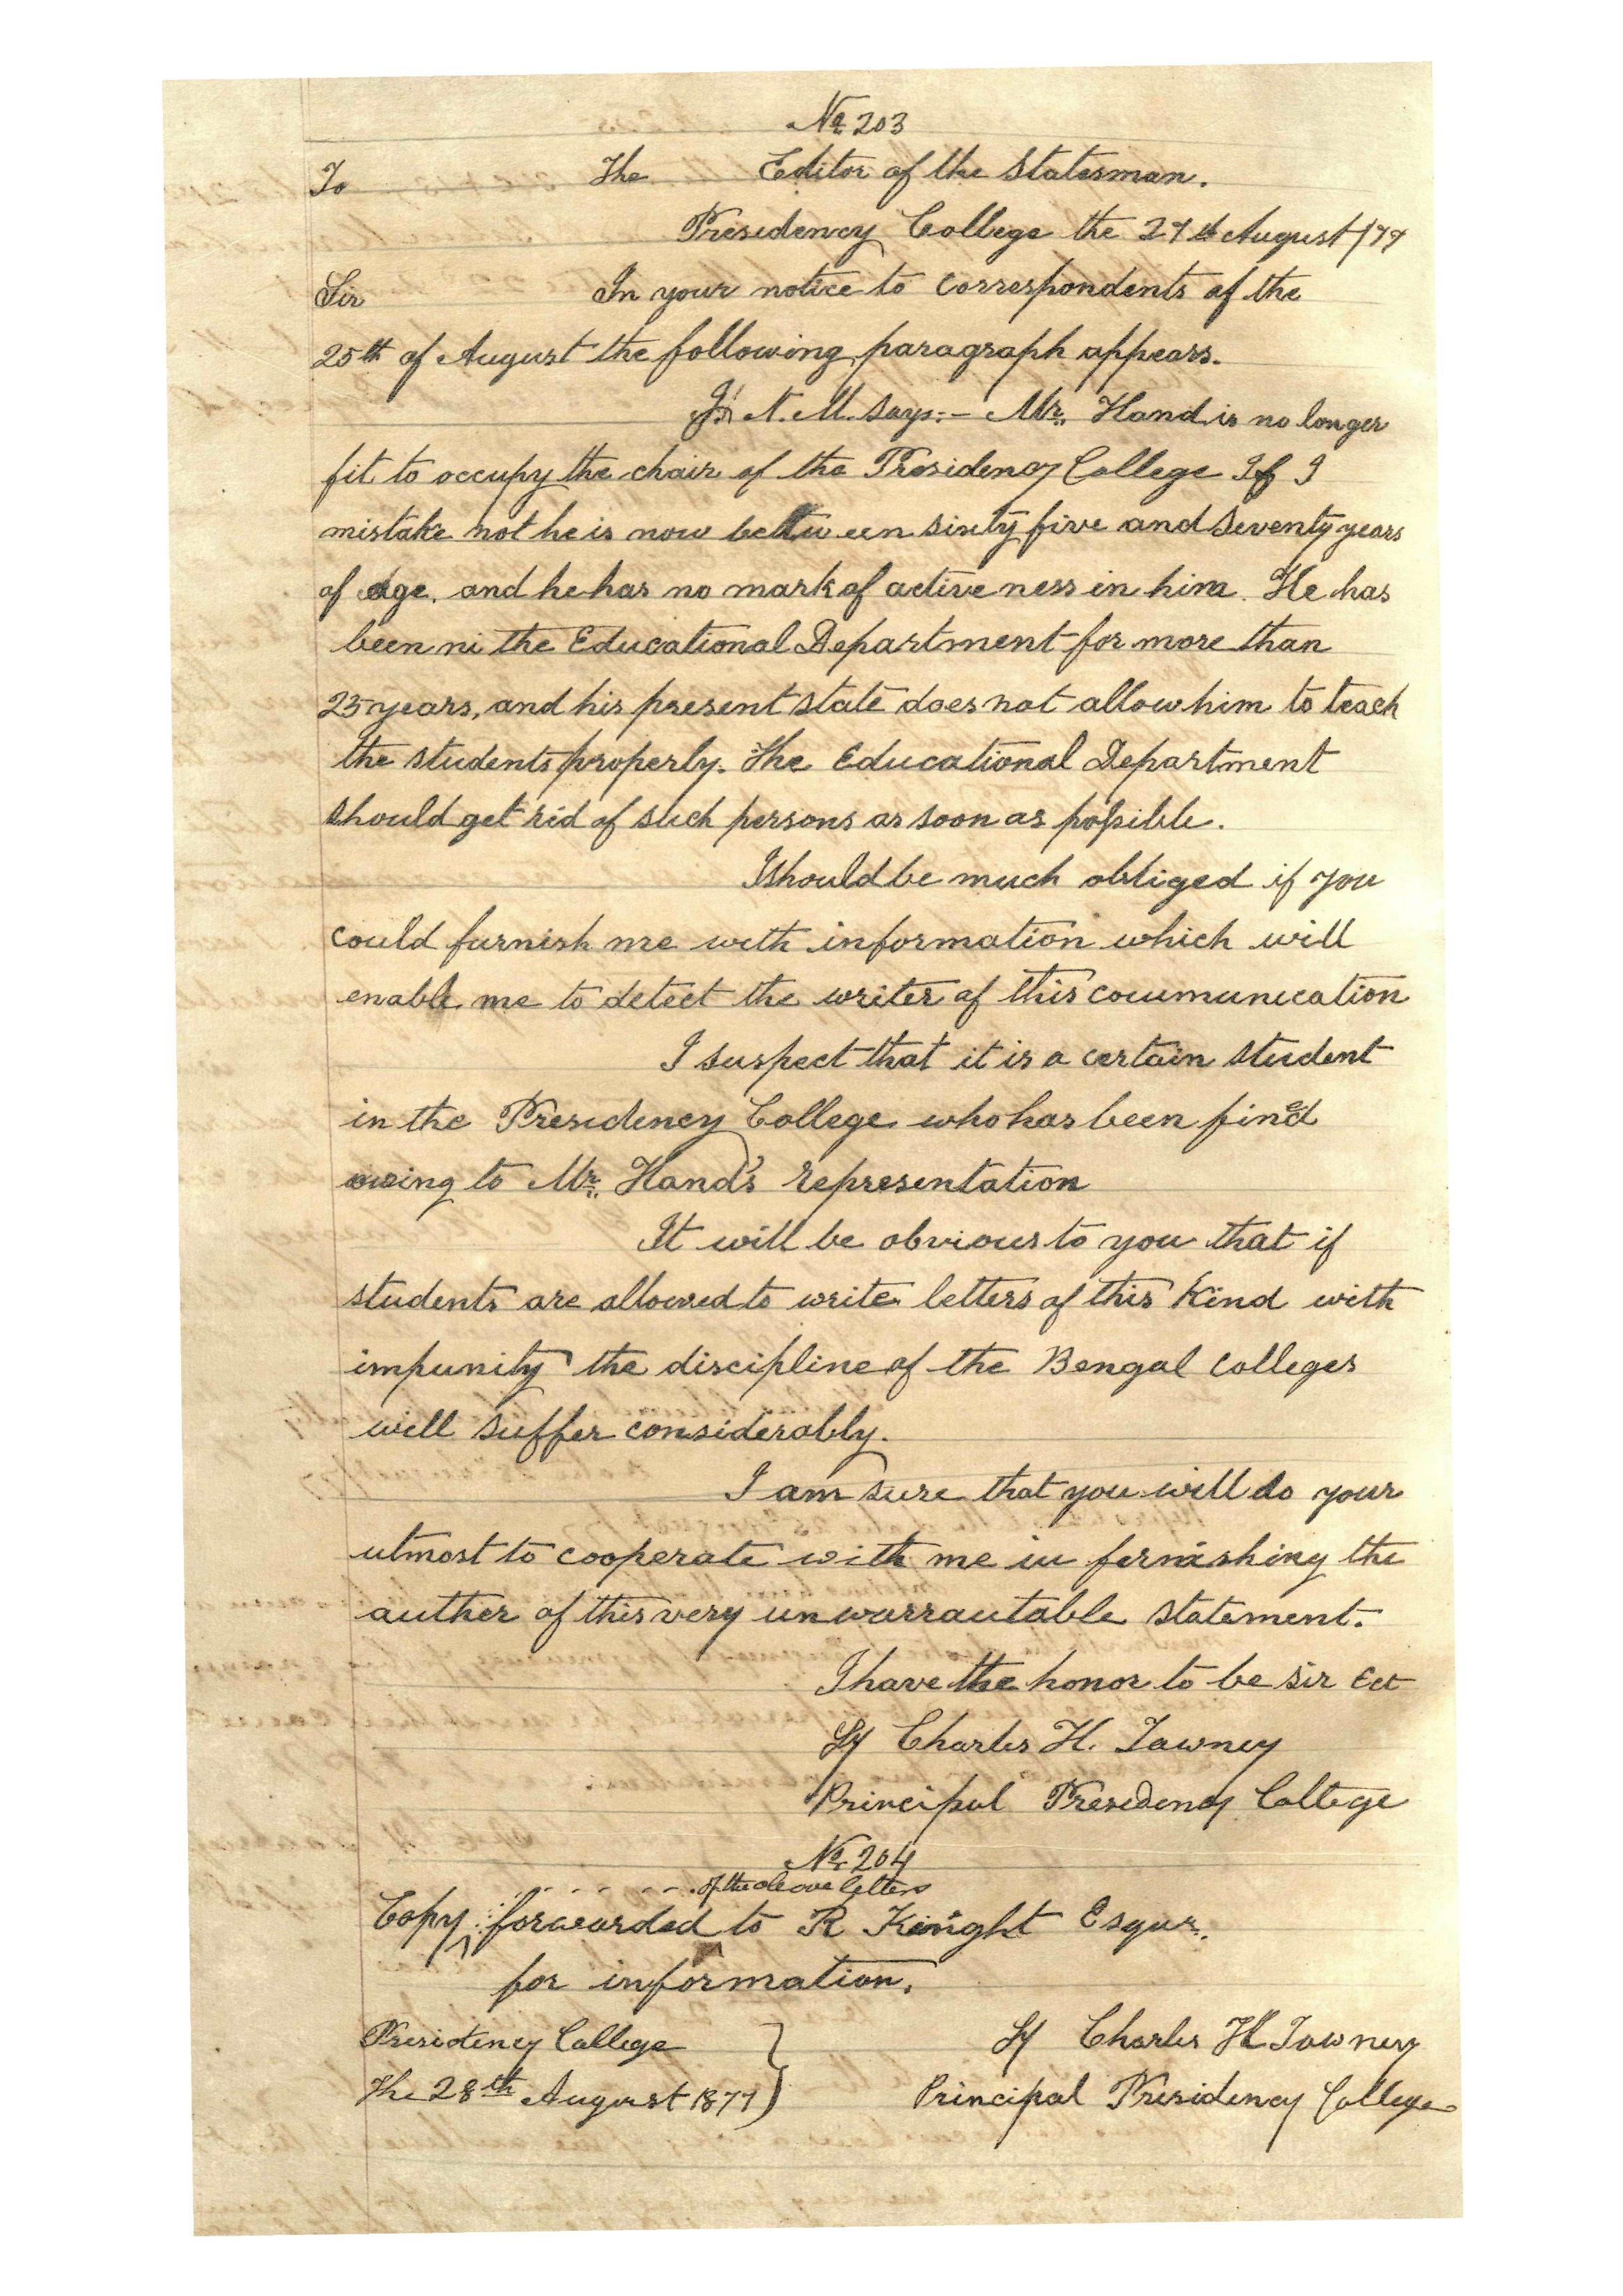 No 203
To The Editor of the Statesman.
Presidency College the 27th August /77
Sir In your notice to correspondents of the
25th of August the following paragraph appears.
N. M. says:- Mr. Hand is no longer
fit to occupy the chair of the Presidency College If I
mistake not he is now between sixty five and seventy years
of age. and he has no mark of activeness in him. He has
been ni the Educational Department for more than
25 years, and his present state does not allow him to teach
the students properly. The Educational Department
should get rid of such persons as soon as possible.
I should be much obliged if you
could furnish me with information which will
enable me to detect the writer of this communication
I suspect that it is a certain student
in the Presidency College who has been fined
owing to Mr. Hand's representation
It will be obvious to you that if
students are allowed to write letters of this kind with
impunity the discipline of the Bengal Colleges
will suffer considerably.
I am sure that you will do your
utmost to cooperate with me in furnishing the
auther of this very unwarrantable statement.
I have the honor to be sir &ct
Sy Charles H. Tawney
Principal Presidency College
No 204
of the above letters
Copy forwarded to R Kinght Esqur.
for information.
Presidency College } Sy Charles H Tawney
The 28th August 1877 ) Principal Presidency College